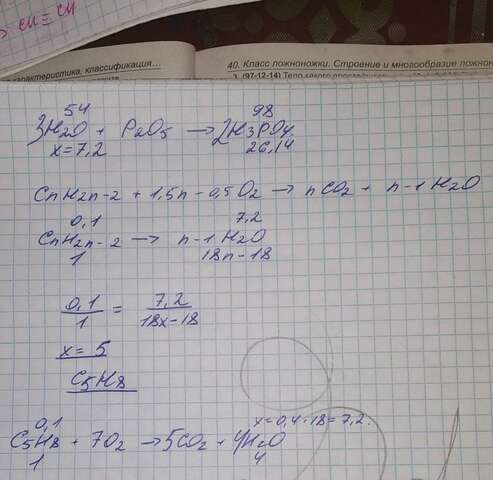 CH ≡ CH
характеристика, классификация...
40. Класс ложноножки. Строение и многообразие ложноно
3. (97-12-14) Тело какого
54 98
3H2O + P2O5 → 2H3PO4
x=7,2 26,14
CnH2n-2 + 1,5n-0,5O2 → nCO2 + n-1 H2O
0,1 7,2
CnH2n-2 → n-1 H2O
1 18n-18
0,1 / 1 = 7,2 / 18x-18
x = 5
C5H8
0,1 x=0,4·18=7,2.
C5H8 + 7O2 → 5CO2 + 4H2O
1 4